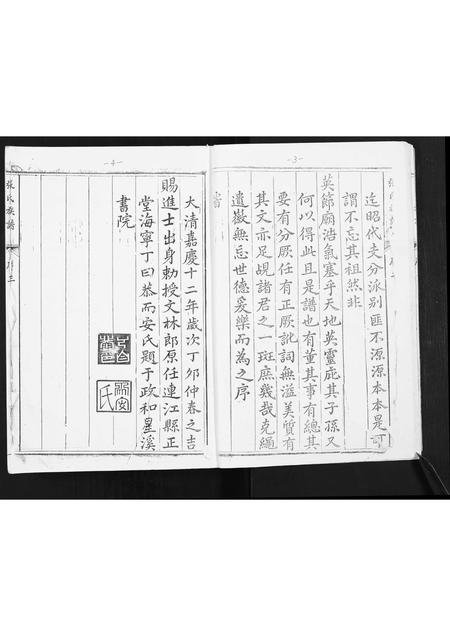 -3-
迄昭代支分派別匪不源源本本是可
謂不忘其祖然非
英節廟浩氣塞乎天地英靈庇其子孫又
何以得此且是譜也有董其事有總其
要有分厥任有正厥訛詞無溢美質有
其文亦足覘諸君之一斑庶幾哉克繩
遺徽無忘世德爰樂而為之序
旹
-4-
大清嘉慶十二年歲次丁夘仲春之吉
賜進士出身勅授文林郎原任連江縣正
堂海寧丁曰恭而安氏題于政和星溪
書院
而安
氏
張氏族譜